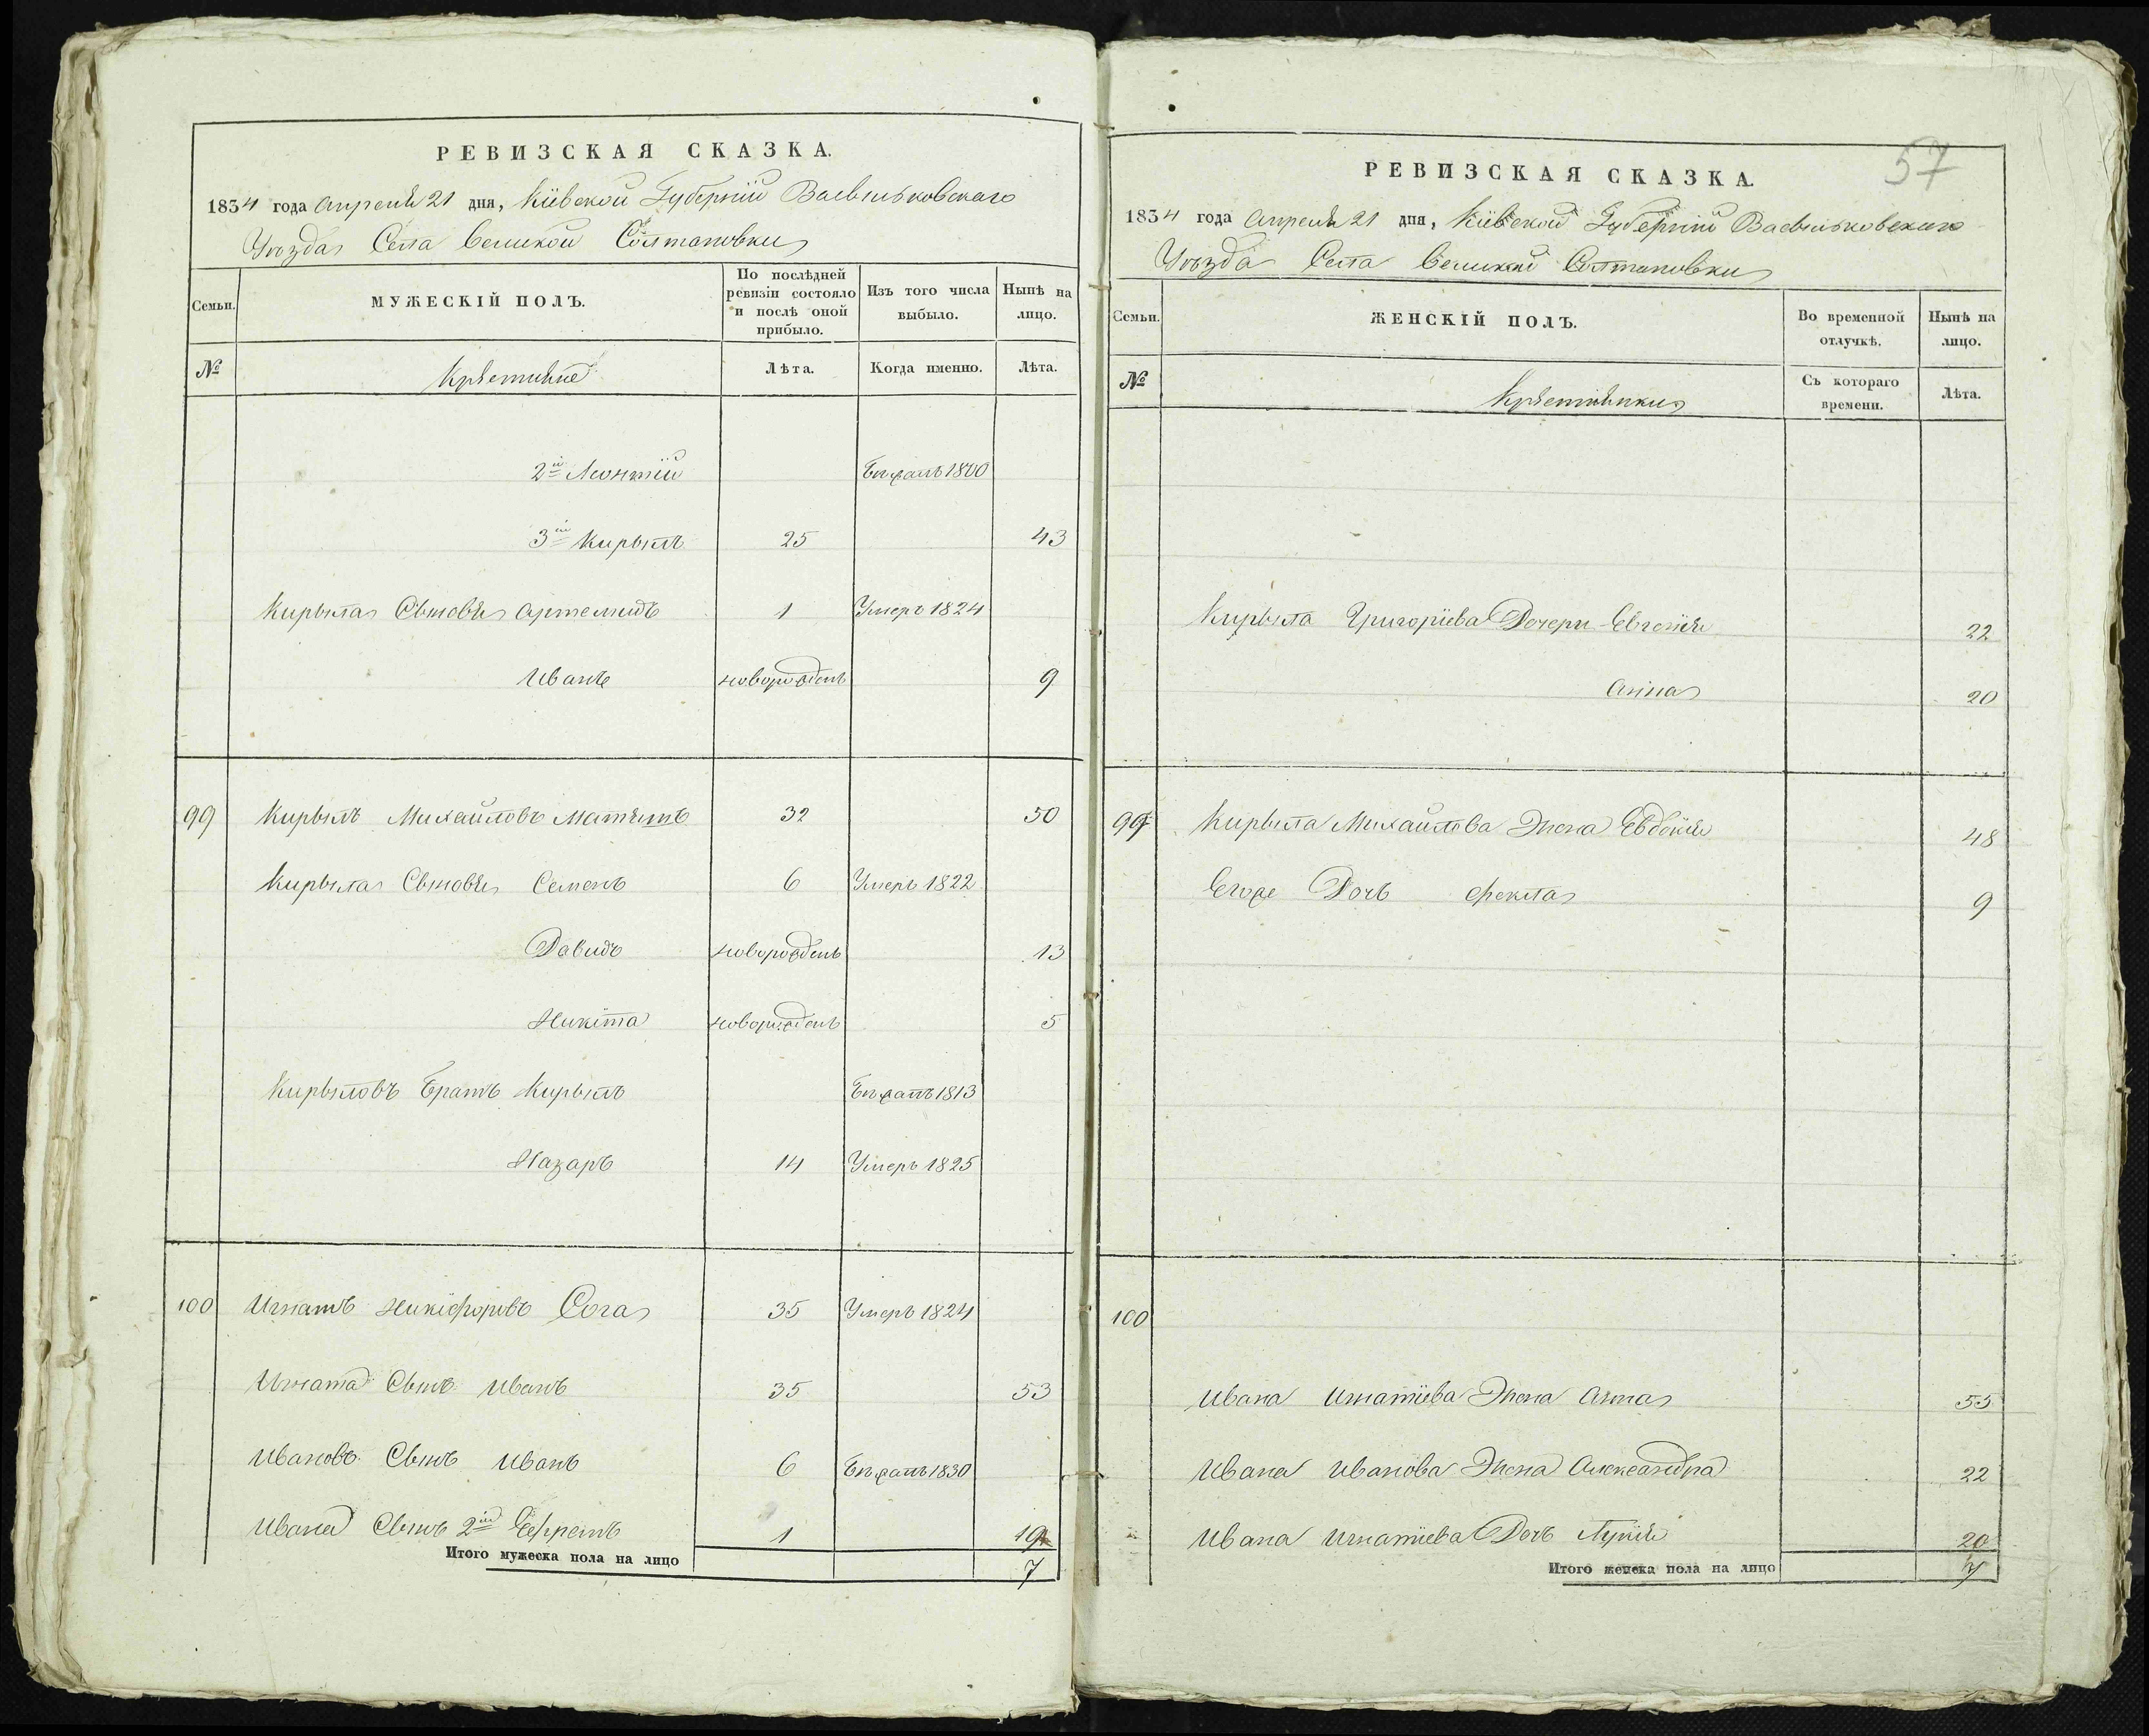 РЕВИЗСКАЯ СКАЗКА.
1834 года Апреля 21 дня, Кіевской Губерніи Васильковскаго
Уѣзда Села Великой Солтановки
Семьи. МУЖЕСКІЙ ПОЛЪ. По послѣдней ревизіи состояло и послѣ оной прибыло. Изъ того числа выбыло. Нынѣ на лицо.
№ Крестьяне Лѣта. Когда именно. Лѣта.
2й Леонтій Бѣжалъ 1800
3й Кирылъ 25 43
Кирыла Сыновья Артемидъ 1 Умеръ 1824
Иванъ новорожденъ 9
99 Кирылъ Михайловъ Матяшъ 32 50
Кирыла Сыновья Семенъ 6 Умеръ 1822
Давидъ новорожденъ 13
Никита новорожденъ 5
Кирыловъ Братъ Кирылъ Бѣжалъ 1813
Назаръ 14 Умеръ 1825
100 Игнатъ Никифоровъ Сога 35 Умеръ 1824
Игната Сынъ Иванъ 35 53
Ивановъ Сынъ Иванъ 6 Бѣжалъ 1830
Ивана Сынъ 2й Ефремъ 1 19
Итого мужеска пола на лицо 7
57
РЕВИЗСКАЯ СКАЗКА.
1834 года Апреля 21 дня, Кіевской Губерніи Васильковскаго
Уѣзда Села Великой Солтановки
Семьи. ЖЕНСКІЙ ПОЛЪ. Во временной отлучкѣ. Нынѣ на лицо.
№ Крестьянки Съ котораго времени. Лѣта.
Кирыла Григоріева Дочери Евгенія 22
Анна 20
99 Кирыла Михайлова Жена Евдокія 48
Егоже Дочь Фекла 9
100
Ивана Игнатіева Жена Анна 55
Ивана Иванова Жена Александра 22
Ивана Игнатіева Дочь Лукія 20
Итого женска пола на лицо 7